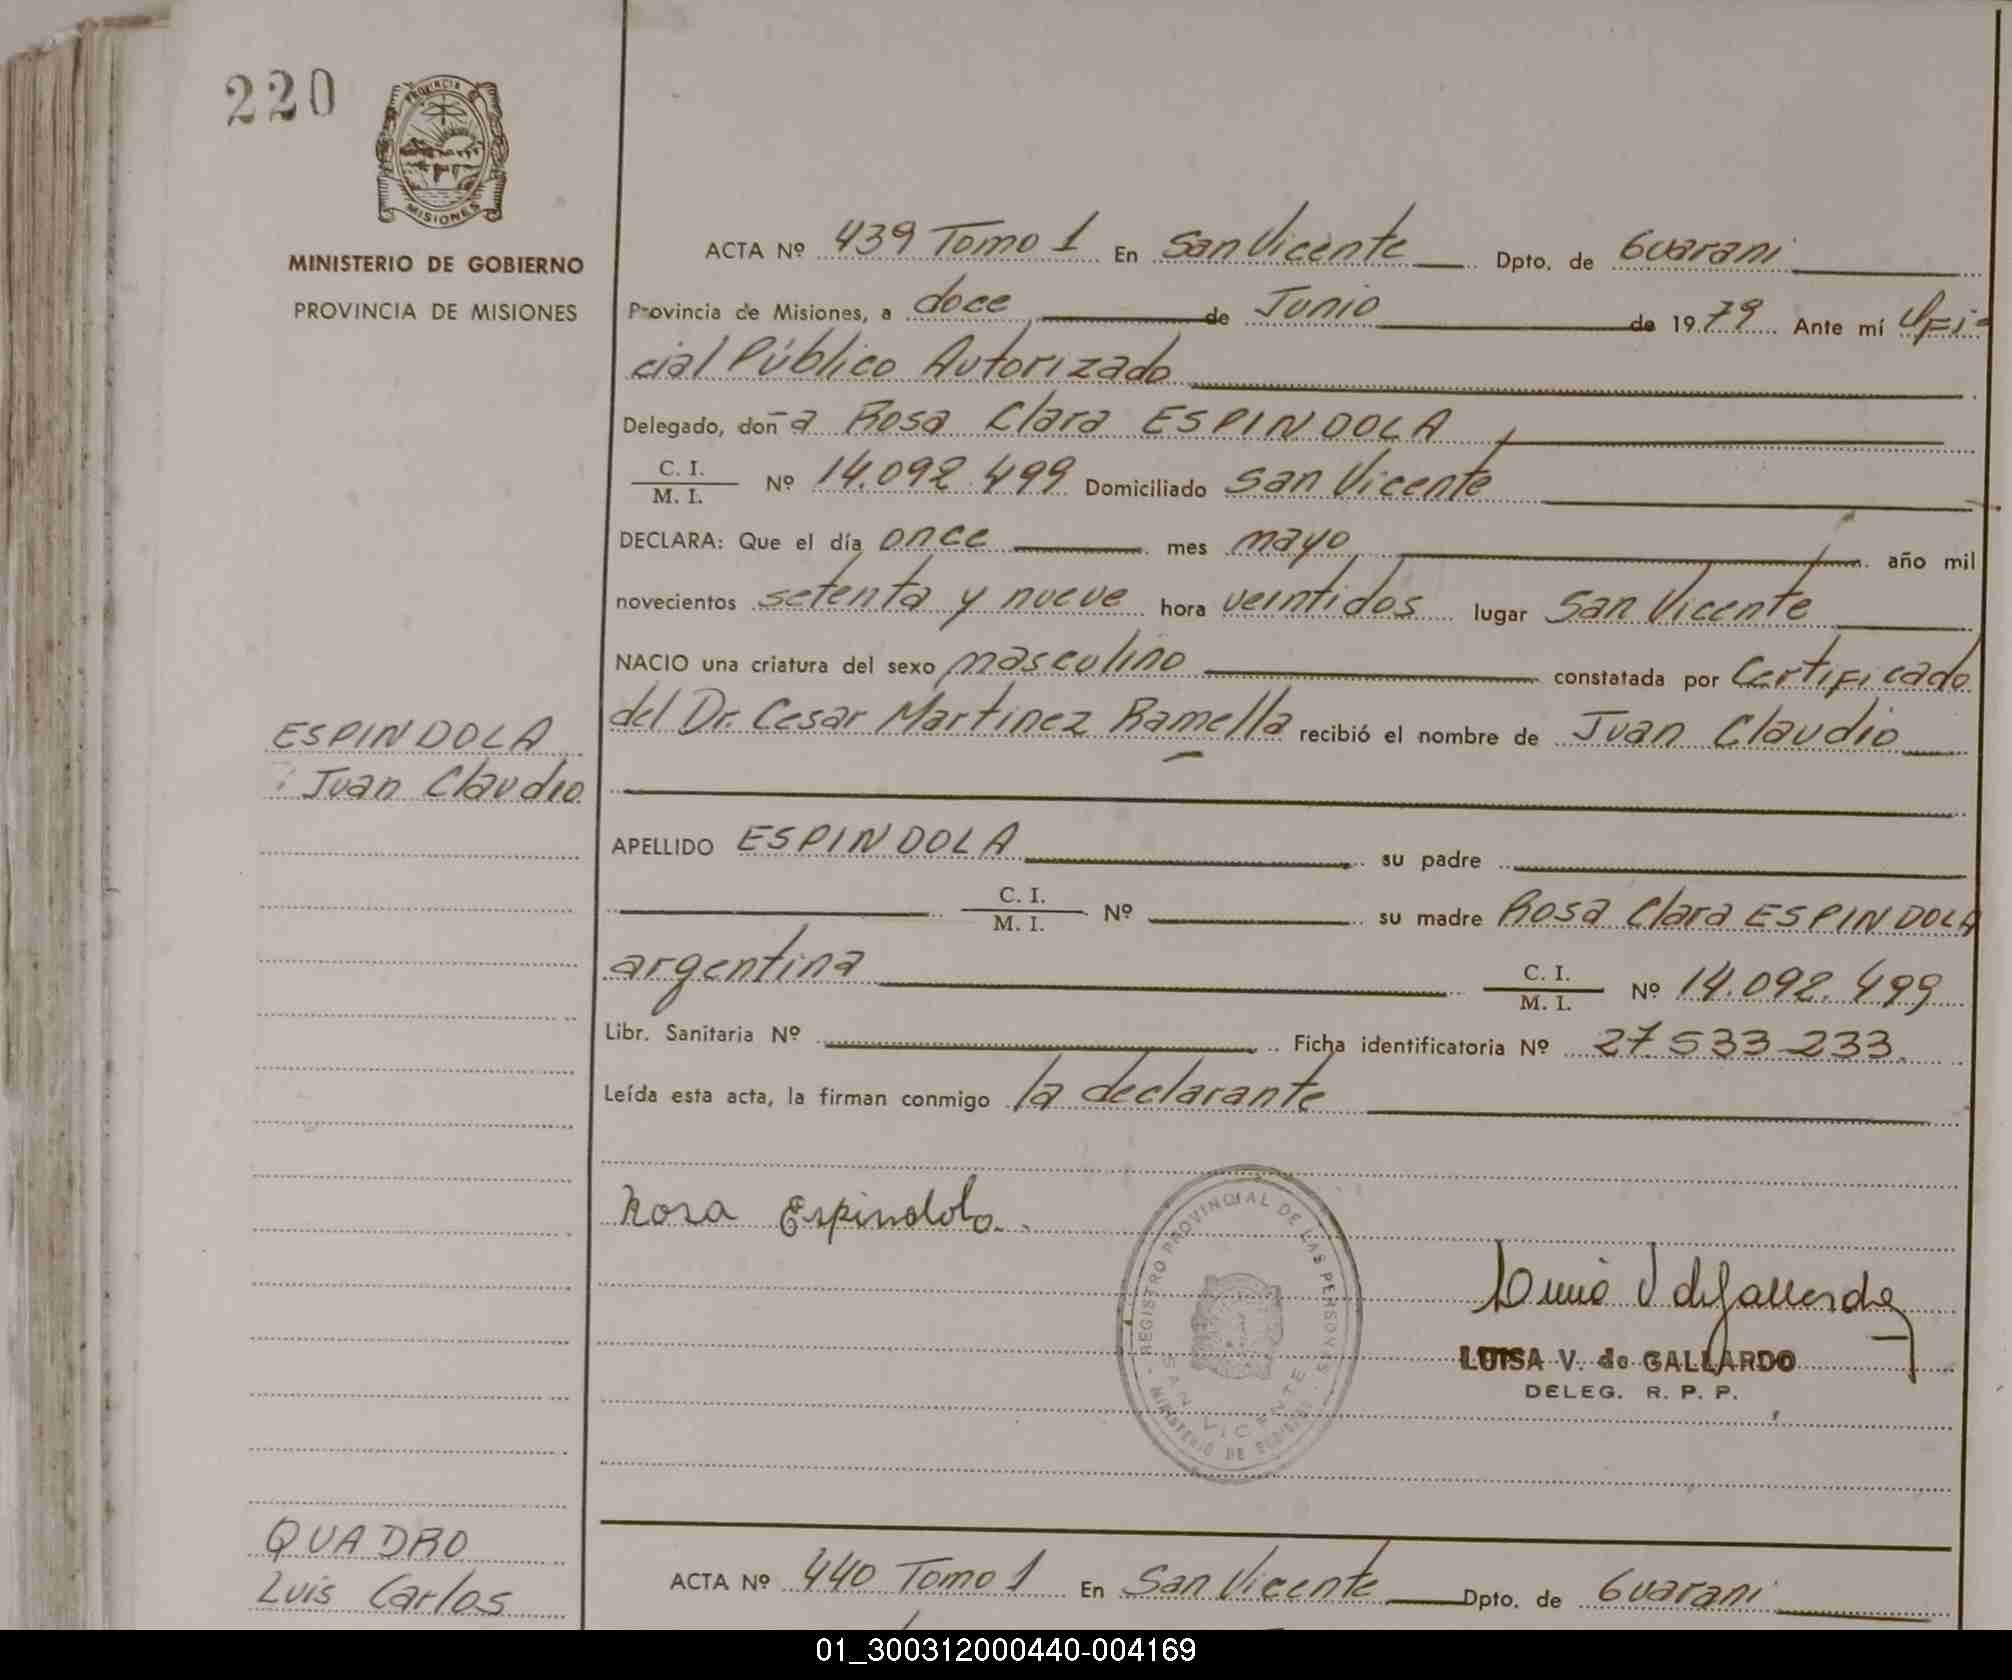 220
PROVINCIA DE
MISIONES
MINISTERIO DE GOBIERNO
PROVINCIA DE MISIONES
ACTA Nº 439 Tomo 1 En San Vicente Dpto. de Guarani
Provincia de Misiones, a doce de Junio de 1979 Ante mí Ofi-
cial Público Autorizado
Delegado, doña Rosa Clara ESPINDOLA
C. I.
M. I.
Nº 14.092.499 Domiciliado San Vicente
DECLARA: Que el día once mes mayo año mil
novecientos setenta y nueve hora veintidos lugar San Vicente
NACIO una criatura del sexo masculino constatada por Certificado
del Dr. Cesar Martinez Ramella recibió el nombre de Juan Claudio
ESPINDOLA
Juan Claudio
APELLIDO ESPINDOLA su padre
C. I.
M. I.
Nº su madre Rosa Clara ESPINDOLA
argentina C. I.
M. I.
Nº 14.092.499
Libr. Sanitaria Nº Ficha identificatoria Nº 27.533.233.
Leída esta acta, la firman conmigo la declarante
Rosa Espindola
REGISTRO PROVINCIAL DE LAS PERSONAS
SAN VICENTE
MINISTERIO DE GOBIERNO
Luisa V de Gallardo
LUISA V. de GALLARDO
DELEG. R. P. P.
QUADRO
Luis Carlos
ACTA Nº 440 Tomo 1 En San Vicente Dpto. de Guarani
01_300312000440-004169